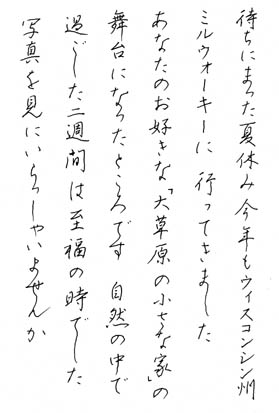 待ちにまった夏休み今年もウィスコンシン州
ミルウォーキーに行ってきました
あなたのお好きな「大草原の小さな家」の
舞台になったところです　自然の中で
過ごした二週間は至福の時でした
写真を見にいらっしゃいませんか